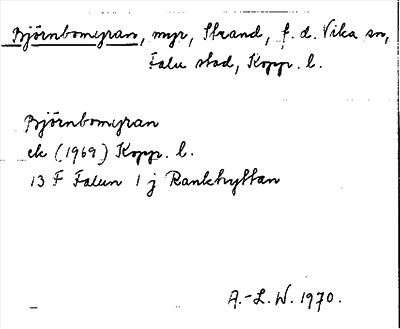 Björnbomyran, myr, Strand, f. d. Vika sn,
Falu stad, Kopp. l.
Björnbomyran
ek (1969) Kopp. l.
13 F Falun 1 j Rankhyttan
A.-L. W. 1970.